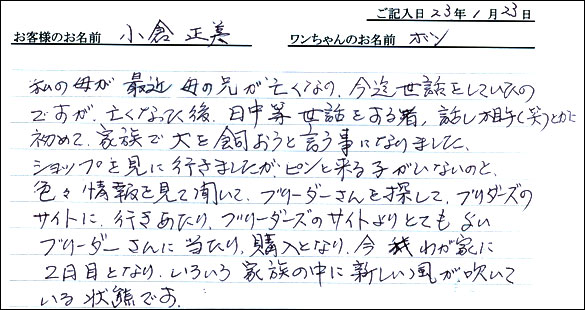 ご記入日 23年 1月 23日
お客様のお名前 小倉 正美 ワンちゃんのお名前 ボン
私の母が 最近 母の兄が亡くなり、今迄世話をしていたの
ですが、亡くなった後、日中等 世話をする者、話し相手(笑)とかに
初めて、家族で犬を飼おうと言う事になりました、
ショップを見に行きましたが、ピンと来る子がいないのと、
色々 情報を見て聞いて、ブリーダーさんを探して、ブリダーズの
サイトに、行きあたり、ブリーダーズのサイトよりとても よい
ブリーダーさんに 当たり、購入となり、今 わが家に
2日目となり、いろいろ 家族の中に新しい風が、吹いて
いる 状態です。